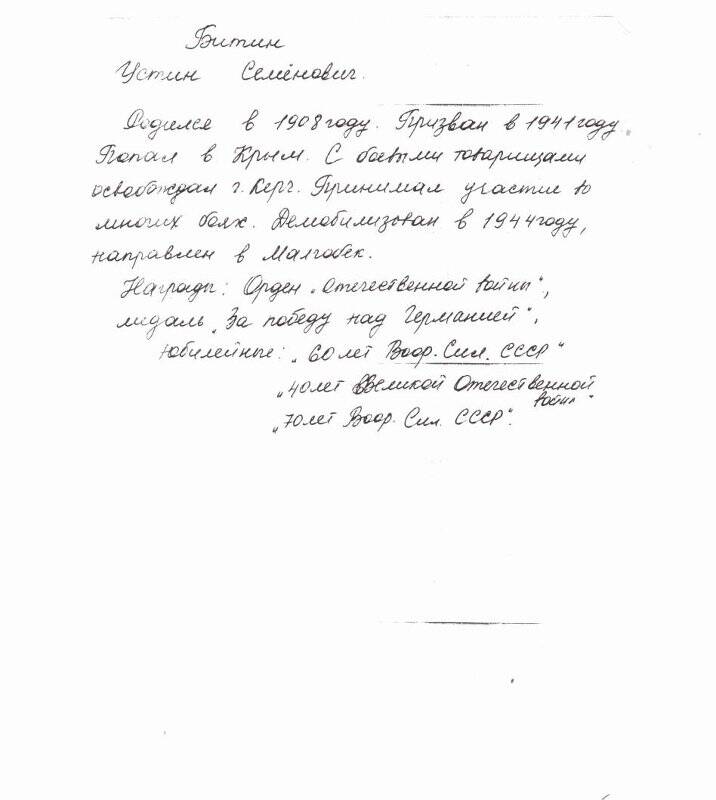 Битин
Устин Семёнович.
Родился в 1908 году. Призван в 1941 году.
Попал в Крым. С боевыми товарищами
освобождал г. Керч. Принимал участие во
многих боях. Демобилизован в 1944 году,
направлен в Малгобек.
Награды: Орден „Отечественной войны",
медаль „За победу над Германией",
Юбилейные: „60 лет Воор. Сил. СССР"
„40 лет ВВеликой Отечественной
войны"
„70 лет Воор. Сил. СССР".